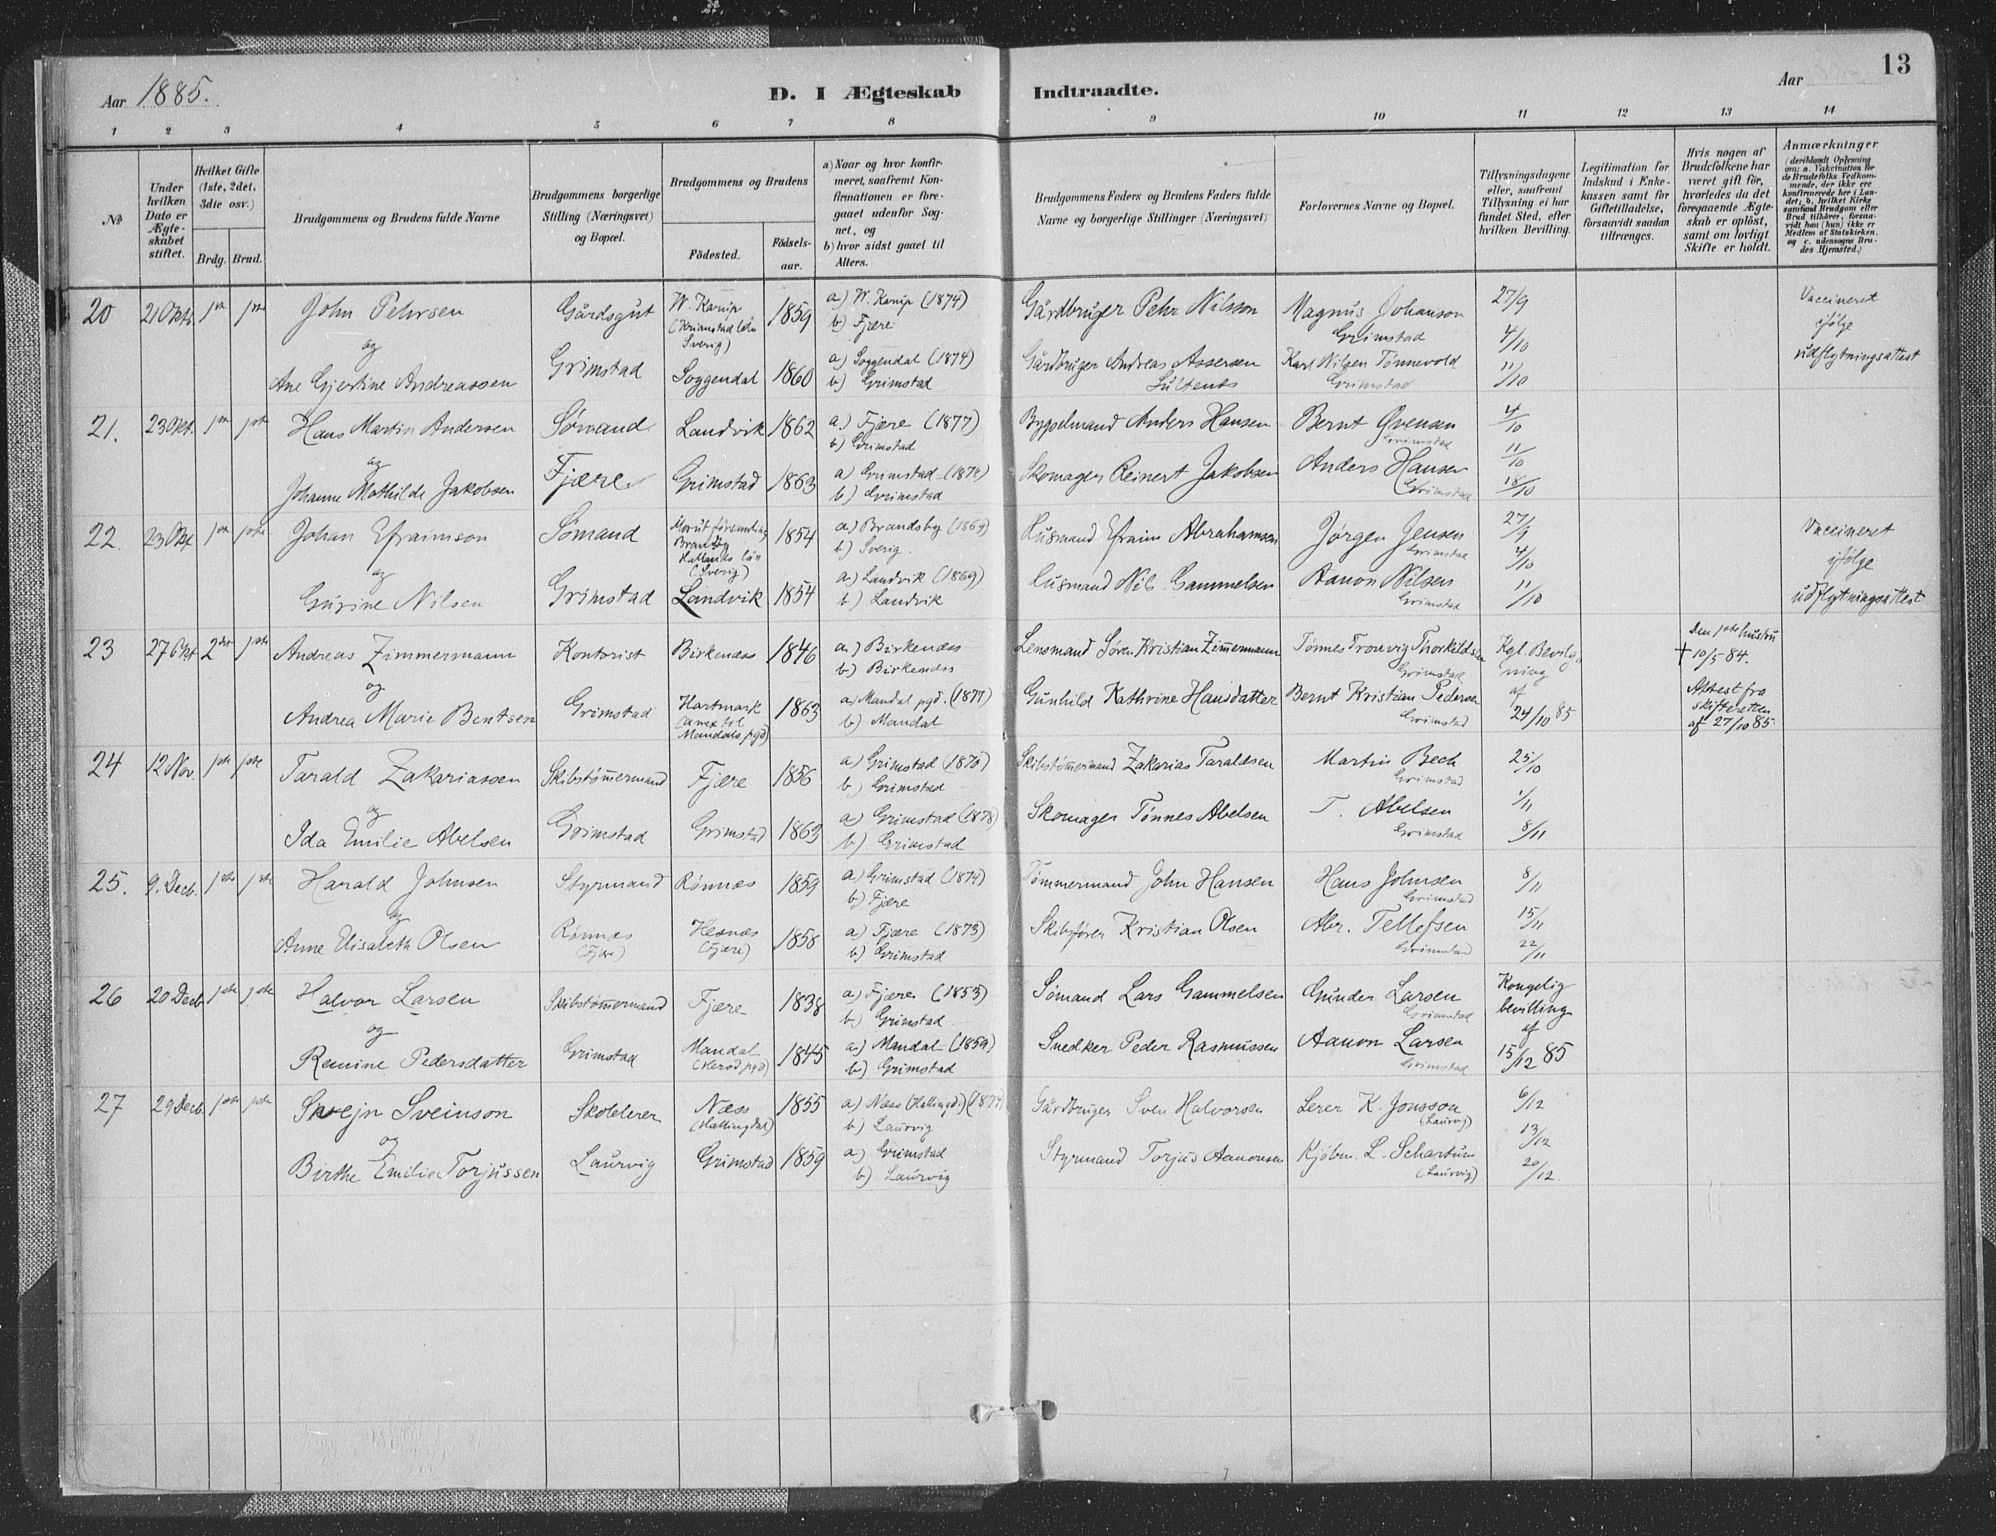 13
Aar 1885.
D. I Ægteskab
Indtraadte.
Aar
1 2 3 4 5 6 7 8 9 10 11 12 13 14
No
Under hvilken Dato er Ægteskabet stiftet.
Hvilket Gifte (1ste, 2det, 3die osv.)
Brdg. Brud.
Brudgommens og Brudens fulde Navne
Brudgommens borgerlige Stilling (Næringsvei) og Bopæl.
Brudgommens og Brudens
Födested.
Födselsaar.
a) Naar og hvor konfirmeret, saafremt Konfirmationen er foregaaet udenfor Sognet, og
b) hvor sidst gaaet til Alters.
Brudgommens Faders og Brudens Faders fulde Navne og borgerlige Stillinger (Næringsvei)
Forlovernes Navne og Bopæl.
Tillysningsdagene eller, saafremt Tillysning ei har fundet Sted, efter hvilken Bevilling.
Legitimation for Indskud i Enkekassen samt for Giftetilladelse, forsaavidt saadan tiltrænges.
Hvis nogen af Brudefolkene har været gift før, hvorledes da det foregaaende Ægteskab er opløst, samt om lovligt Skifte er holdt.
Anmærkninger
(deriblandt Oplysning om: a. Vakcination for de Brudefolks Vedkommende, der ikke ere konfirmerede her i Landet; b. hvilket Kirkesamfund Brudgom eller Brud tilhører, forsaavidt han (hun) ikke er Medlem af Statskirken, og c. udensogns Brudes Hjemsted.)
20 21 Okt. John Pehrsen Gårdsgut W. Karup 1859 a) W. Karup (1874) Gårdbruger Pehr Nilsson Magnus Johanson 27/9 Vaccineret
(Kristianstad län Sverig) b) Fjære Grimstad 4/10 ifølge
og
Ane Gjertine Andreassen Grimstad Soggendal 1860 a) Soggendal (1874) Gårdbruger Andreas Assersen Karl Nilsen Tønnevold 11/10 udflytningsattest
b) Grimstad Grimstad
21. 23 Okt. Hans Martin Andersen Sømand Landvik 1862 a) Fjære (1877) Anders Hansen Bernt Evensen 4/10
b) Grimstad Grimstad
og
Johanne Mathilde Jakobsen Fjære Grimstad 1863 a) Grimstad (1878) Skomager Reinert Jakobsen Anders Hansen 11/10
b) Grimstad Grimstad 18/10
22. 23 Okt Johan Efraimson Sømand 1854 a) Brandsby (1869) Husmand Efraim Abrahamsen Jørgen Jensen 27/9 Vaccineret
Hallands län (Sverig) b) Sverig. Grimstad 4/10 ifølge
og
Gurine Nilsen Grimstad Landvik 1854 a) Landvik (1869) Husmand Nils Gammelsen Aanon Nilsen 11/10 udflytningsattest
b) Landvik Grimstad
23 27 Okt 2det 1ste Andreas Zimmermann Kontorist Birkenæs 1846 a) Birkenæs Lensmand Søren Kristian Zimmermann Tønnes Tronvig Thorkildsen Kgl. Bevilgning Den 1ste hustru
b) Birkenæs Grimstad af † 10/5 84.
og
Andrea Marie Bentsen Grimstad Hartmark 1863 a) Mandal pgd. (1877) Gunhild Kathrine Hansdatter Bernt Kristian Pedersen 24/10 85 Attest fra skifteretten
(anex til Mandals pgd) b) Mandal Grimstad af 27/10 85.
24 12 Nov. 1ste 1ste Tarald Zakariassen Skibstømmermand Fjære 1856 a) Grimstad (1870) Skibstømmermand Zakarias Taraldsen Martin Bech 25/10
b) Grimstad Grimstad
og
Ida Emilie Abelsen Grimstad Grimstad 1863 a) Grimstad (1878) Skomager Tønnes Abelsen T. Abelsen 1/11
b) Grimstad Grimstad 8/11
25. 9. Decb. 1ste 1ste Harald Johnsen Styrmand Rønnæs 1859 a) Grimstad (1874) Tømmermand John Hansen Hans Johnsen 8/11
b) Fjære Grimstad
og
Anne Elisabeth Olsen Rønnæs (Fjære) Hesnæs (Fjære) 1858 a) Fjære (1873) Skibsfører Kristian Olsen Abr. Tellefsen 15/11
b) Grimstad Grimstad 22/11
26 20 Decb 1ste 1ste Halvor Larsen Skibstømmermand Fjære 1838 a) Fjære (1853) Sømand Lars Gammelsen Gunder Larsen Kongelig
b) Grimstad Grimstad bevilling
og af
Remine Pedersdatter Grimstad Mandal 1845 a) Mandal (1859) Snedker Peder Rasmussen Aanon Larsen 15/12 85
b) Grimstad Grimstad
27 29 Decb. 1ste 1ste Svejn Sveinson Skolelerer Næss 1855 a) Næss (Hallingd.) (1874) Gårdbruger Sven Halvorsen Lerer K. Jonsson 6/12
(Hallingdal) b) Laurvig (Laurvig)
og
Birthe Emilie Torjussen Laurvig Grimstad 1859 a) Grimstad Styrmand Torjus Aanonsen Kjøbm. L. Schartum 13/12
b) Laurvig (Laurvig) 20/12.